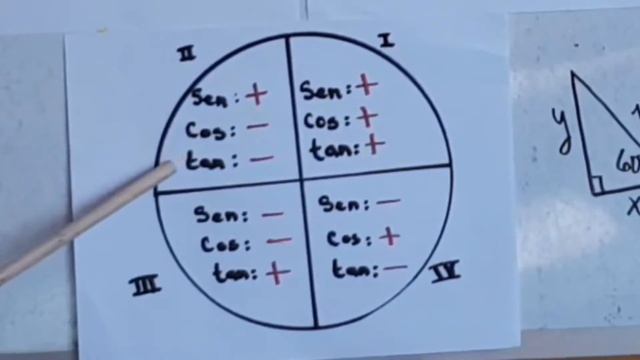 II
I
Sen: +
Cos: -
tan: -
Sen: +
Cos: +
tan: +
Sen: -
Cos: -
tan: +
Sen: -
Cos: +
tan: -
III
IV
y
60
x